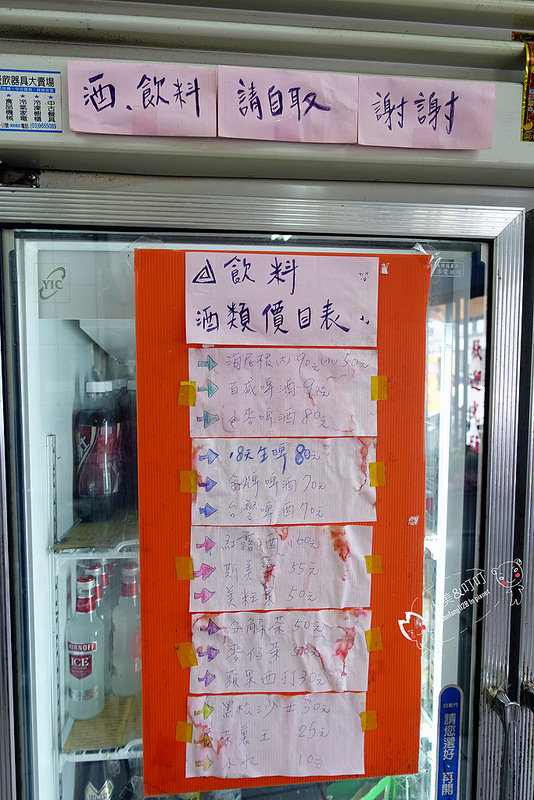 飲器具大賣場
酒、飲料
請自取
謝謝
YIC
飲料
酒類價目表
海尼根(大)90元(小)50元
百威啤酒90元
小麥啤酒80元
18天生啤80元
金牌啤酒70元
台灣啤酒70元
紅露酒60元
斯美 55元
美粒果50元
分解茶50元
麥仔茶50元
蘋果西打30元
黑松沙士30元
25元
小水10元
SMIRNOFF
ICE
請您選好、再開